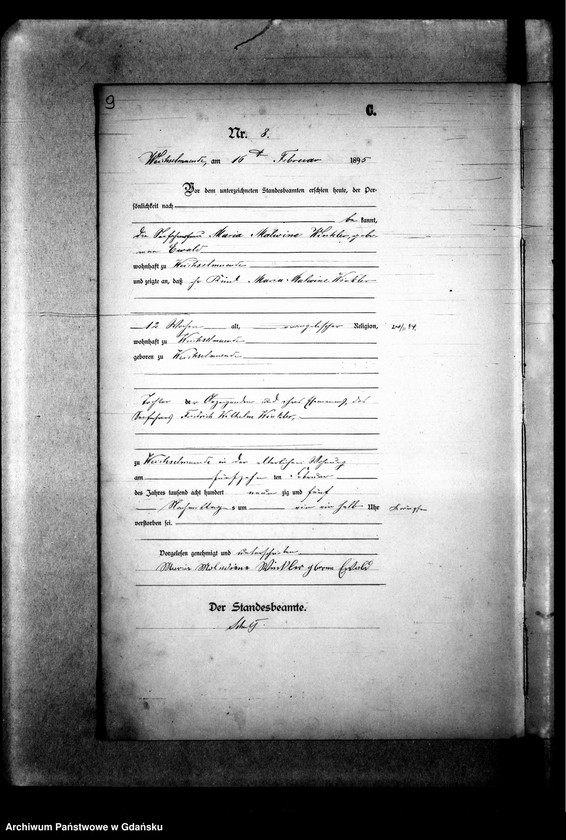 9
C.
Nr. 8.
Weichselmünde, am 16 ten Februar 1895
Vor dem unterzeichneten Standesbeamten erschien heute, der Per-
sönlichkeit nach
be kannt,
die Seefahrerfrau Maria Malwine Winkler, gebo
rene Ewald
wohnhaft zu Weichselmünde
und zeigte an, daß ihr Kind Maria Malwine Winkler
12 Wochen alt, evangelischer Religion,
wohnhaft zu Weichselmünde
geboren zu Weichselmünde
Tochter der Anzeigenden und ihres Ehemannes, des
Seefahrers Friedrich Wilhelm Winkler,
zu Weichselmünde in der elterlichen Wohnung
am fünfzehn ten Februar
des Jahres tausend acht hundert neun zig und fünf
Nachmittags um ein ein halb Uhr
verstorben sei.
Vorgelesen, genehmigt und unterschrieben
Maria Winkler geborne Ewald
Der Standesbeamte.
Archiwum Państwowe w Gdańsku